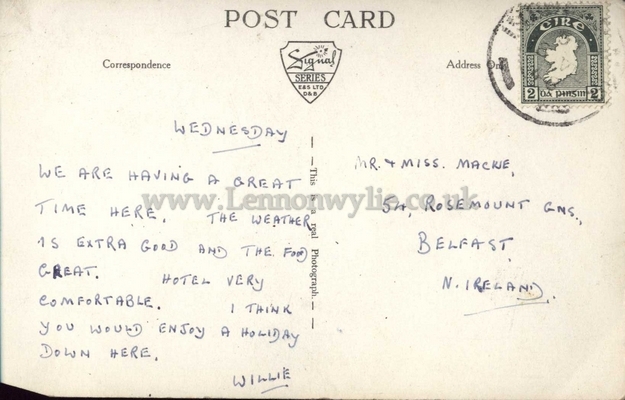 POST CARD
Correspondence
Signal
SERIES
E&S LTD
D&B
Address Only
EIRE
2 2
DÁ PINGIN
WEDNESDAY
WE ARE HAVING A GREAT
TIME HERE. THE WEATHER
IS EXTRA GOOD AND THE FOOD
GREAT. HOTEL VERY
COMFORTABLE. I THINK
YOU WOULD ENJOY A HOLIDAY
DOWN HERE.
WILLIE
This is a real Photograph.
MR. & MISS. MACKIE,
5A, ROSEMOUNT GNS.,
BELFAST
N. IRELAND.
www.Lennonwylie.co.uk